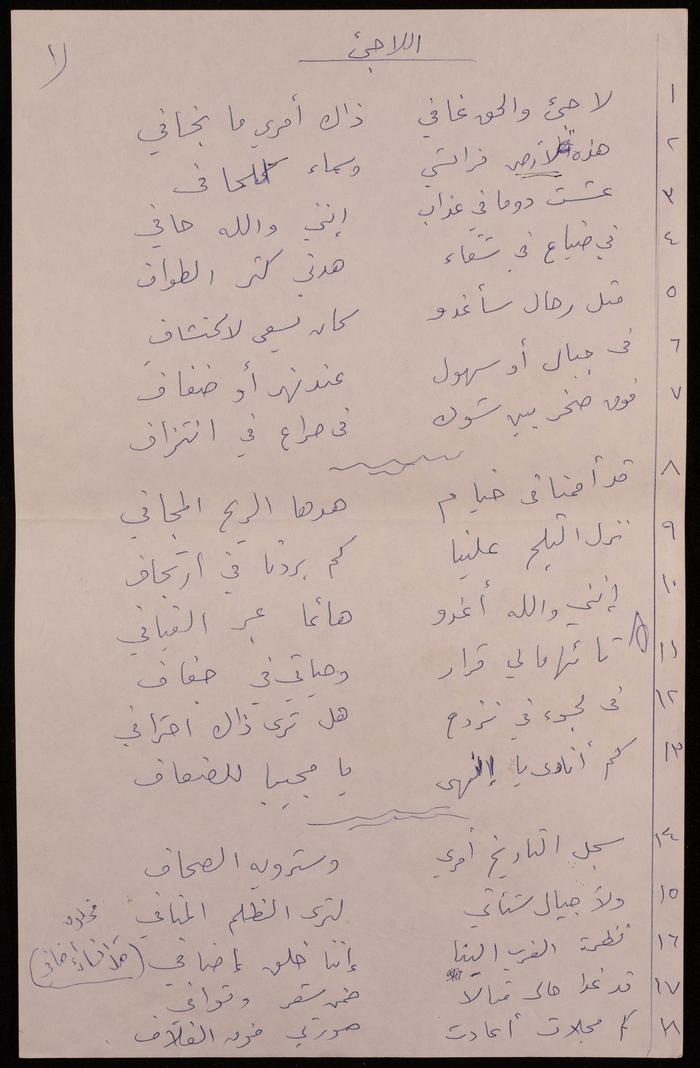 اللاجئ
١ لاجئ والحق غافي ذاك أمري ما بخافي
٢ هذه الأرض فراشي وسماء لحافي
٣ عشت دوما في عذاب إنني والله حافي
٤ في ضياع في شقاء هدني كثر الطواف
٥ مثل رحال سأغدو كان يسعى لاكتشاف
٦ في جبال أو سهول عند نهر أو ضفاف
٧ فوق صخر بين شوك في صراع في انتزاف
٨ قد أقمنا في خيام هدها الريح المجافي
٩ نزل الثلج علينا كم بردنا في ارتجاف
١٠ إنني والله أغدو هائما عبر الفيافي
١١ تائها مالي قرار وحياتي في جفاف
١٢ في لجوء في نزوح هل ترى ذاك احترافي
١٣ كم أنادي يا إلهي يا مجيبا للضعاف
١٤ سجل التاريخ أمري وسترويه الصحاف
١٥ ولأجيال ستأتي لترى الظلم المنافي
١٦ نظرة الغرب الينا إننا خلق إضافي
١٧ قد غدا حالي مثالا ضمن شعر وقوافي
١٨ كم مجلات أعادت صورتي فوق الغلاف